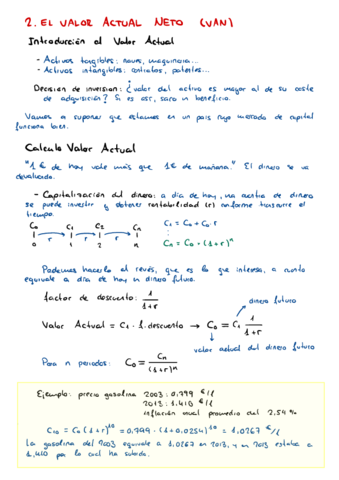 2. EL VALOR ACTUAL NETO (VAN)
Introducción al Valor Actual
- Activos tangibles: naves, maquinaria...
- Activos intangibles: contratos, patentes...
Decisión de inversión: ¿valor del activo es mayor al de su coste
de adquisición? Si es así, saco un beneficio.
Vamos a suponer que estamos en un país cuyo mercado de capital
funciona bien.
Calculo Valor Actual
"1 € de hoy vale más que 1€ de mañana." El dinero se va
devaluando.
- Capitalización del dinero: a día de hoy, una cantia de dinero
se puede invertir y obtener rentabilidad (r) conforme transcurre el
tiempo.
C₀ C₁ C₂ Cn
r r r
0 1 2 n
C₁ = C₀ + C₀ · r
⋮
Cn = C₀ · (1+r)ⁿ
Podemos hacerlo al revés, que es lo que interesa, a cuanto
equivale a día de hoy un dinero futuro.
factor de descuento: 1/(1+r)
dinero futuro
Valor Actual = C₁ · f. descuento → C₀ = C₁ 1/(1+r)
valor actual del dinero futuro
Para n periodos: C₀ = Cn/(1+r)ⁿ
Ejemplo: precio gasolina 2003: 0,799 €/l
2013: 1,410 €/l
inflación anual promedio del 2.54 %
C₁₀ = C₀ (1+r)¹⁰ = 0,799 · (1+0,0254)¹⁰ = 1,0267 €/l
La gasolina del 2003 equivale a 1,0267 en 2013, y en 2013 estaba a
1,410 por lo cual ha subido.